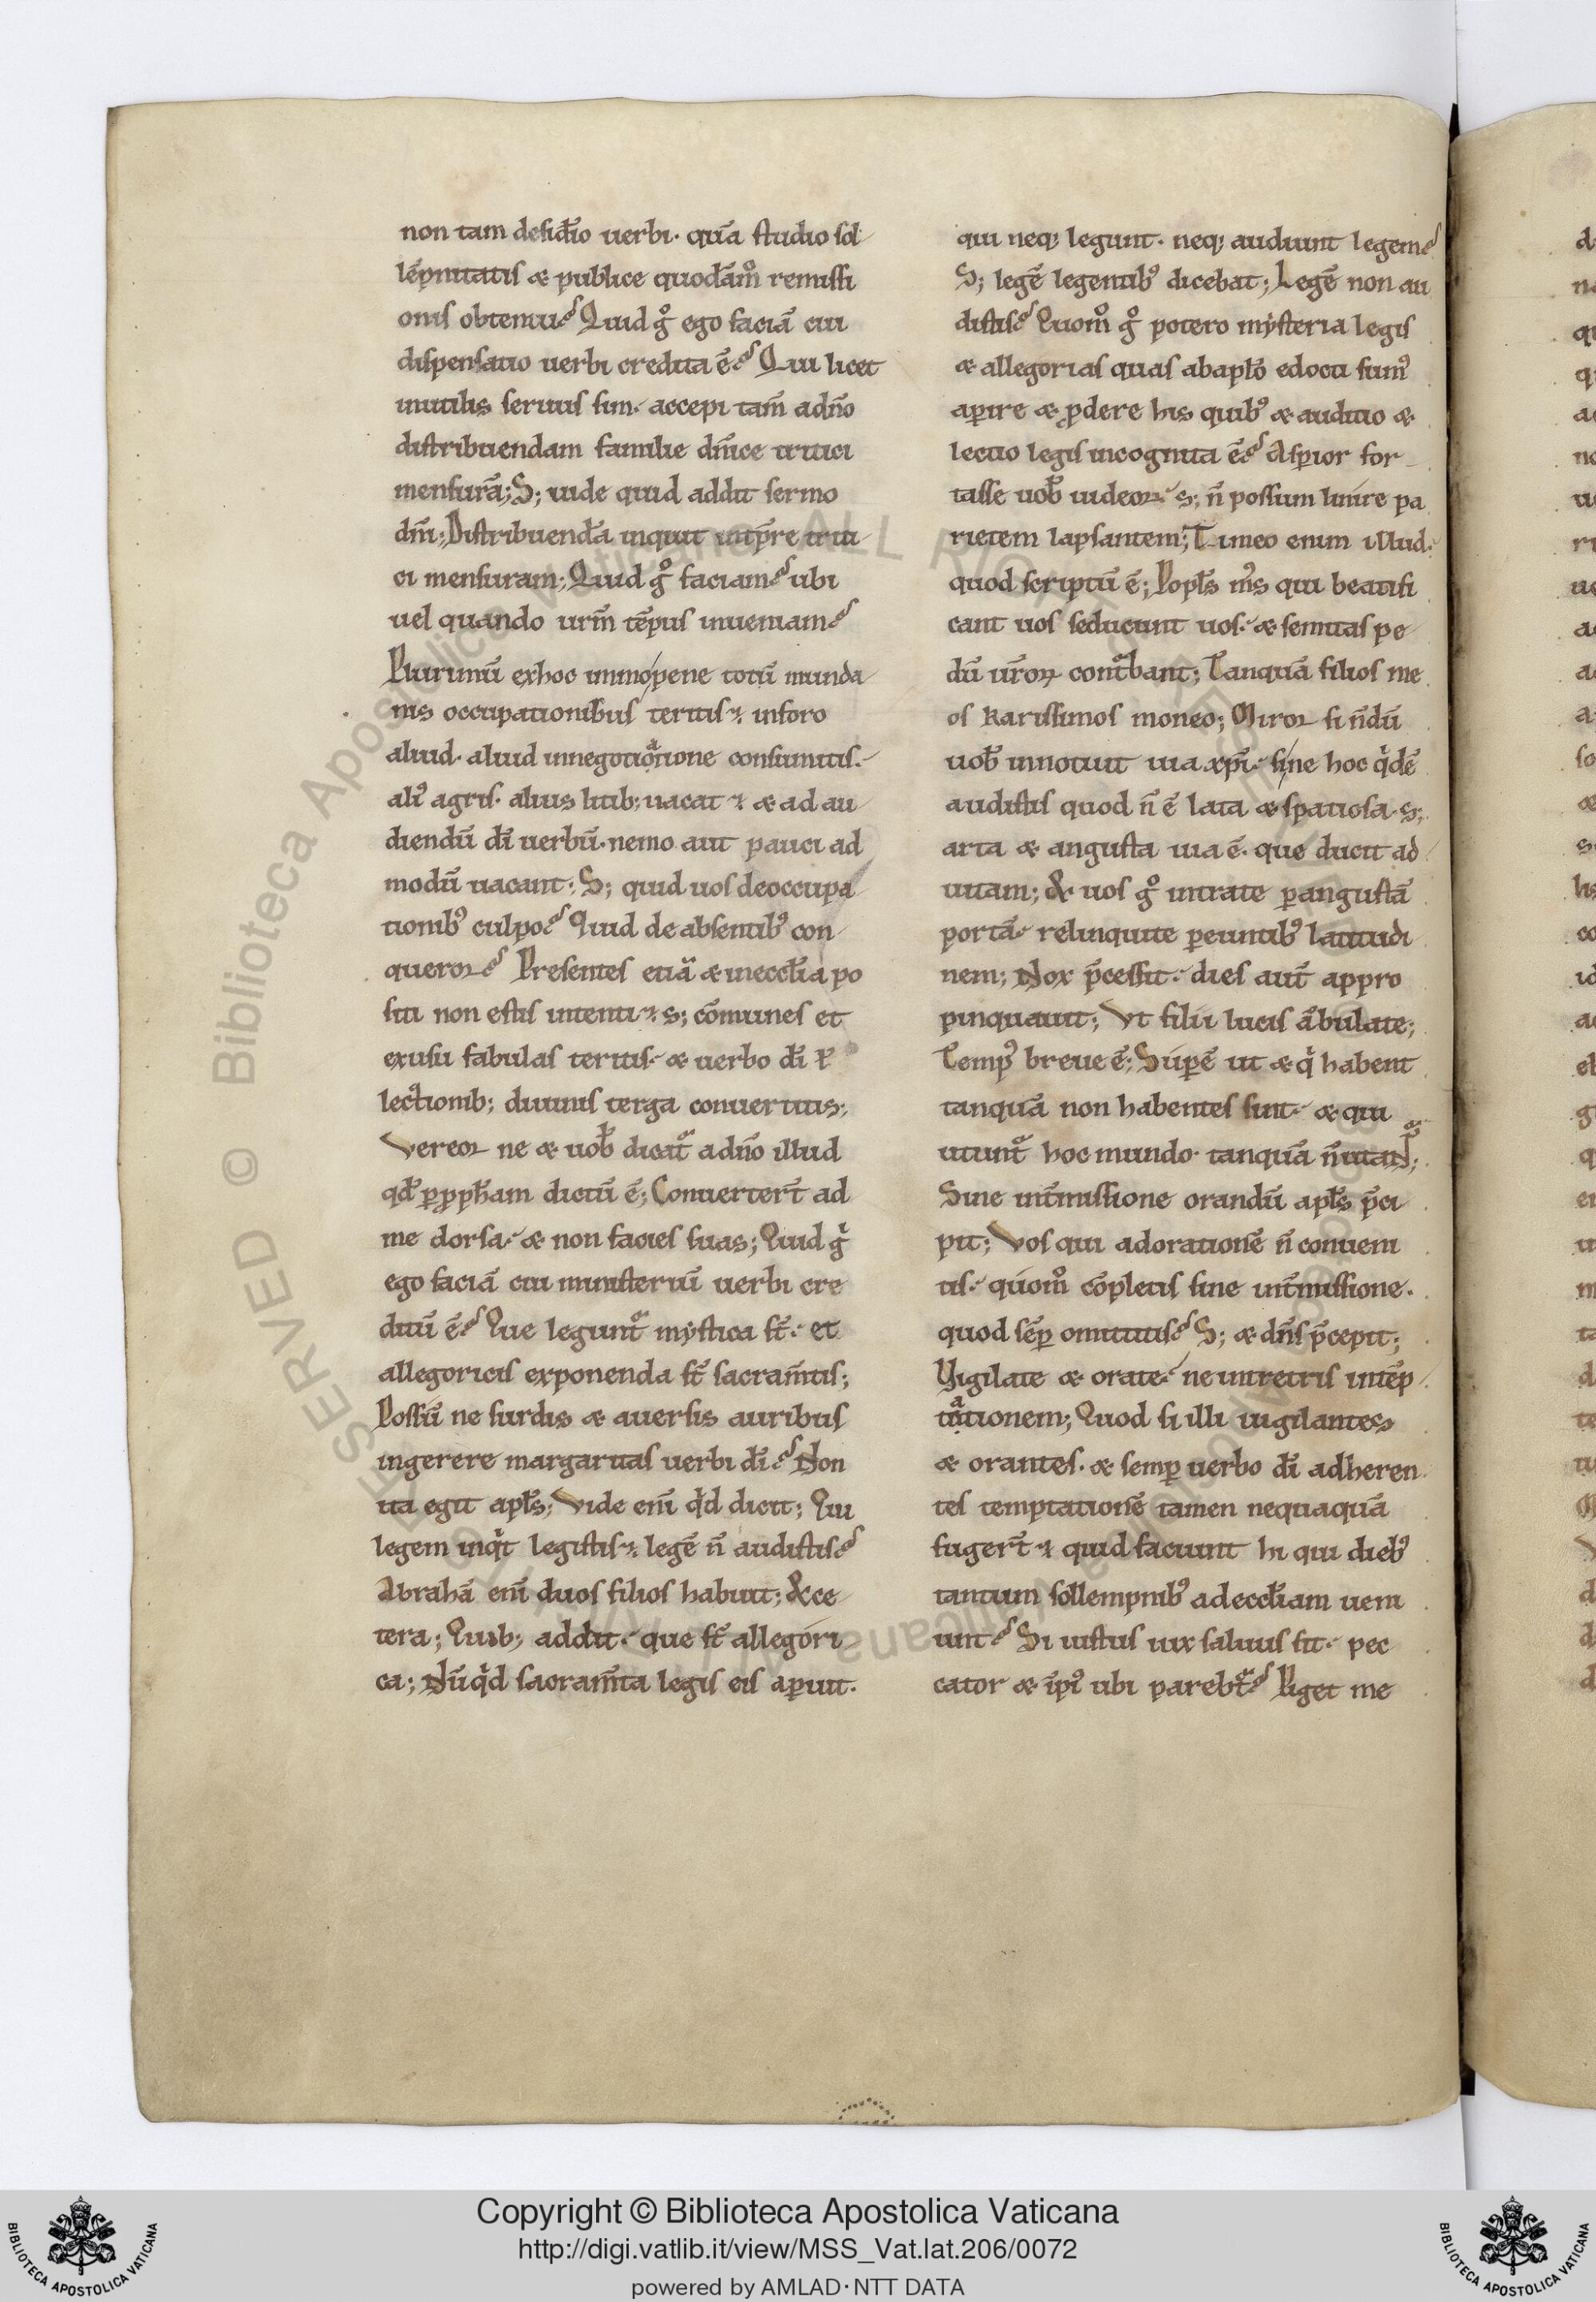 non tam desiđio uerbi· quã studio sol
lẽpnitatis & publice quodãm̊ remissi
onis obtenui? Quid g̊ ego faciã cui
dispensatio uerbi credita ẽ? Qui licet
inutilis seruus sim· accepi tam̃ adño
distribuendam familie dñice tritici
mensurã; S; uide quid addit sermo
dñi; Distribuenđa inquit intp̃re triti
ci mensuram; Quid g̊ faciam? ubi
uel quando urm̃ tẽpus inueniam?
Plurimũ exhoc immo/pene totũ munda
nis occupationibus teritis· inforo
aliud· aliud innegotiatione consumitis·
ali᷒ agris· alius litib; uacat & ad au
diendũ dĩ uerbũ· nemo aut pauci ad
modũ uacant; S; quid uos deoccupa
tionib᷒ culpo? Quid de absentib᷒ con
queror? Presentes etiã & ineccłia po
siti non estis intenti· s; cõmunes et
exusu fabulas teritis· & uerbo dĩ ł
lectionib; diuinis terga conuertitis;
Vereor ne & uob̃ dicat᷑ adño illud
qđ p̱pp̃ħam dictũ ẽ; Conuertert̃ ad
me dorsa· & non facies suas; Quid g̊
ego faciã cui ministeriũ uerbi cre
ditũ ẽ? Que legunt᷑ mystica st̃· et
allegoricis exponenda st̃ sacram̃tis;
Possũ ne surdis & auersis auribus
ingerere margaritas uerbi dĩ? Non
ita egit apls̃; Vide enĩ qͥd dicit; Qui
legem inqͥt legistis· legẽ ñ audistis?
Abrahã enĩ duos filios habuit; & ce
tera; Quib; addit· que st̃ allegori
ca; Nũqͥd sacram̃ta legis eis aperuit·
qui neq; legunt· neq; audiunt legem?
S; legẽ legentib᷒ dicebat; Legẽ non au
distis? Quom̊ g̊ potero mysteria legis
& allegorias quas abaplõ edocti sum᷒
aperire & p̱dere his quib᷒ & auditio &
lectio legis incognita ẽ? Asp̱ior for
tasse uob̃ uideor· s; ñ possum linire pa
rietem lapsantem; Timeo enim illud·
quod scriptũ ẽ; Popłs m̃s qui beatifi
cant uos seducunt uos· & semitas pe
dũ ur̃oꝝ cont᷑bant; Tanquã filios me
os karissimos moneo; Miror si ñdũ
uob̃ innotuit uia xp̃i· si/ne hoc qͥdẽ
audistis quod ñ ẽ lata & spatiosa· s;
arta & angusta uia ẽ· que ducit ad
uitam; & uos g̊ intrate p̱angustã
portã· relinquite p̱euntib᷒ latitudi
nem; Nox p̃cessit· dies aut̃ appro
pinquauit; Vt filii lucis ãbulate;
Temp᷒ breue ẽ; Sup̱ẽ ut & qͥ habent
tanquã non habentes sint· & qui
utunt᷑ hoc mundo· tanquã ñ utant᷑;
Sine int̃missione orandũ apłs p̃ci
pit; Vos qui adorationẽ ñ conueni
tis· quom̊ cõpletis sine int̃missione·
quod sẽp̱ omittitis? S; & dñs p̃cepit;
Vigilate & orate· ne intretis intẽp
tationem; Quod si illi uigilantes
& orantes· & semp̱ uerbo dĩ adheren
tes temptationẽ tamen nequaquã
fugert̃· quid faciunt hi qui dieb᷒
tantum sollempnib᷒ adeccłiam ueni
unt? Si iustus uix saluus fit· pec
cator & ĩpi᷒ ubi parebt᷑? Piget me
Copyright © Biblioteca Apostolica Vaticana
http://digi.vatlib.it/view/MSS_Vat.lat.206/0072
powered by AMLAD·NTT DATA